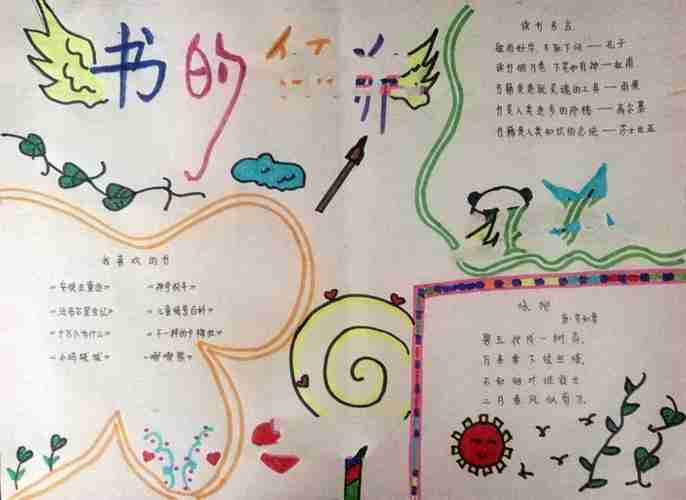 书的
读书名言
敏而好学,不耻下问——孔子
读书破万卷 下笔如有神——杜甫
书籍是造就灵魂的工具——雨果
书是人类进步的阶梯——高尔基
书籍是人类知识的总统——莎士比亚
我喜欢的书
《安徒生童话》 《神奇校车》
《法布尔昆虫记》 《儿童情景百科》
《十万个为什么》 《不一样的卡梅拉》
咏柳
唐·贺知章
碧玉妆成一树高,
万条垂下绿丝绦,
不知细叶谁裁出
二月春风似剪刀。